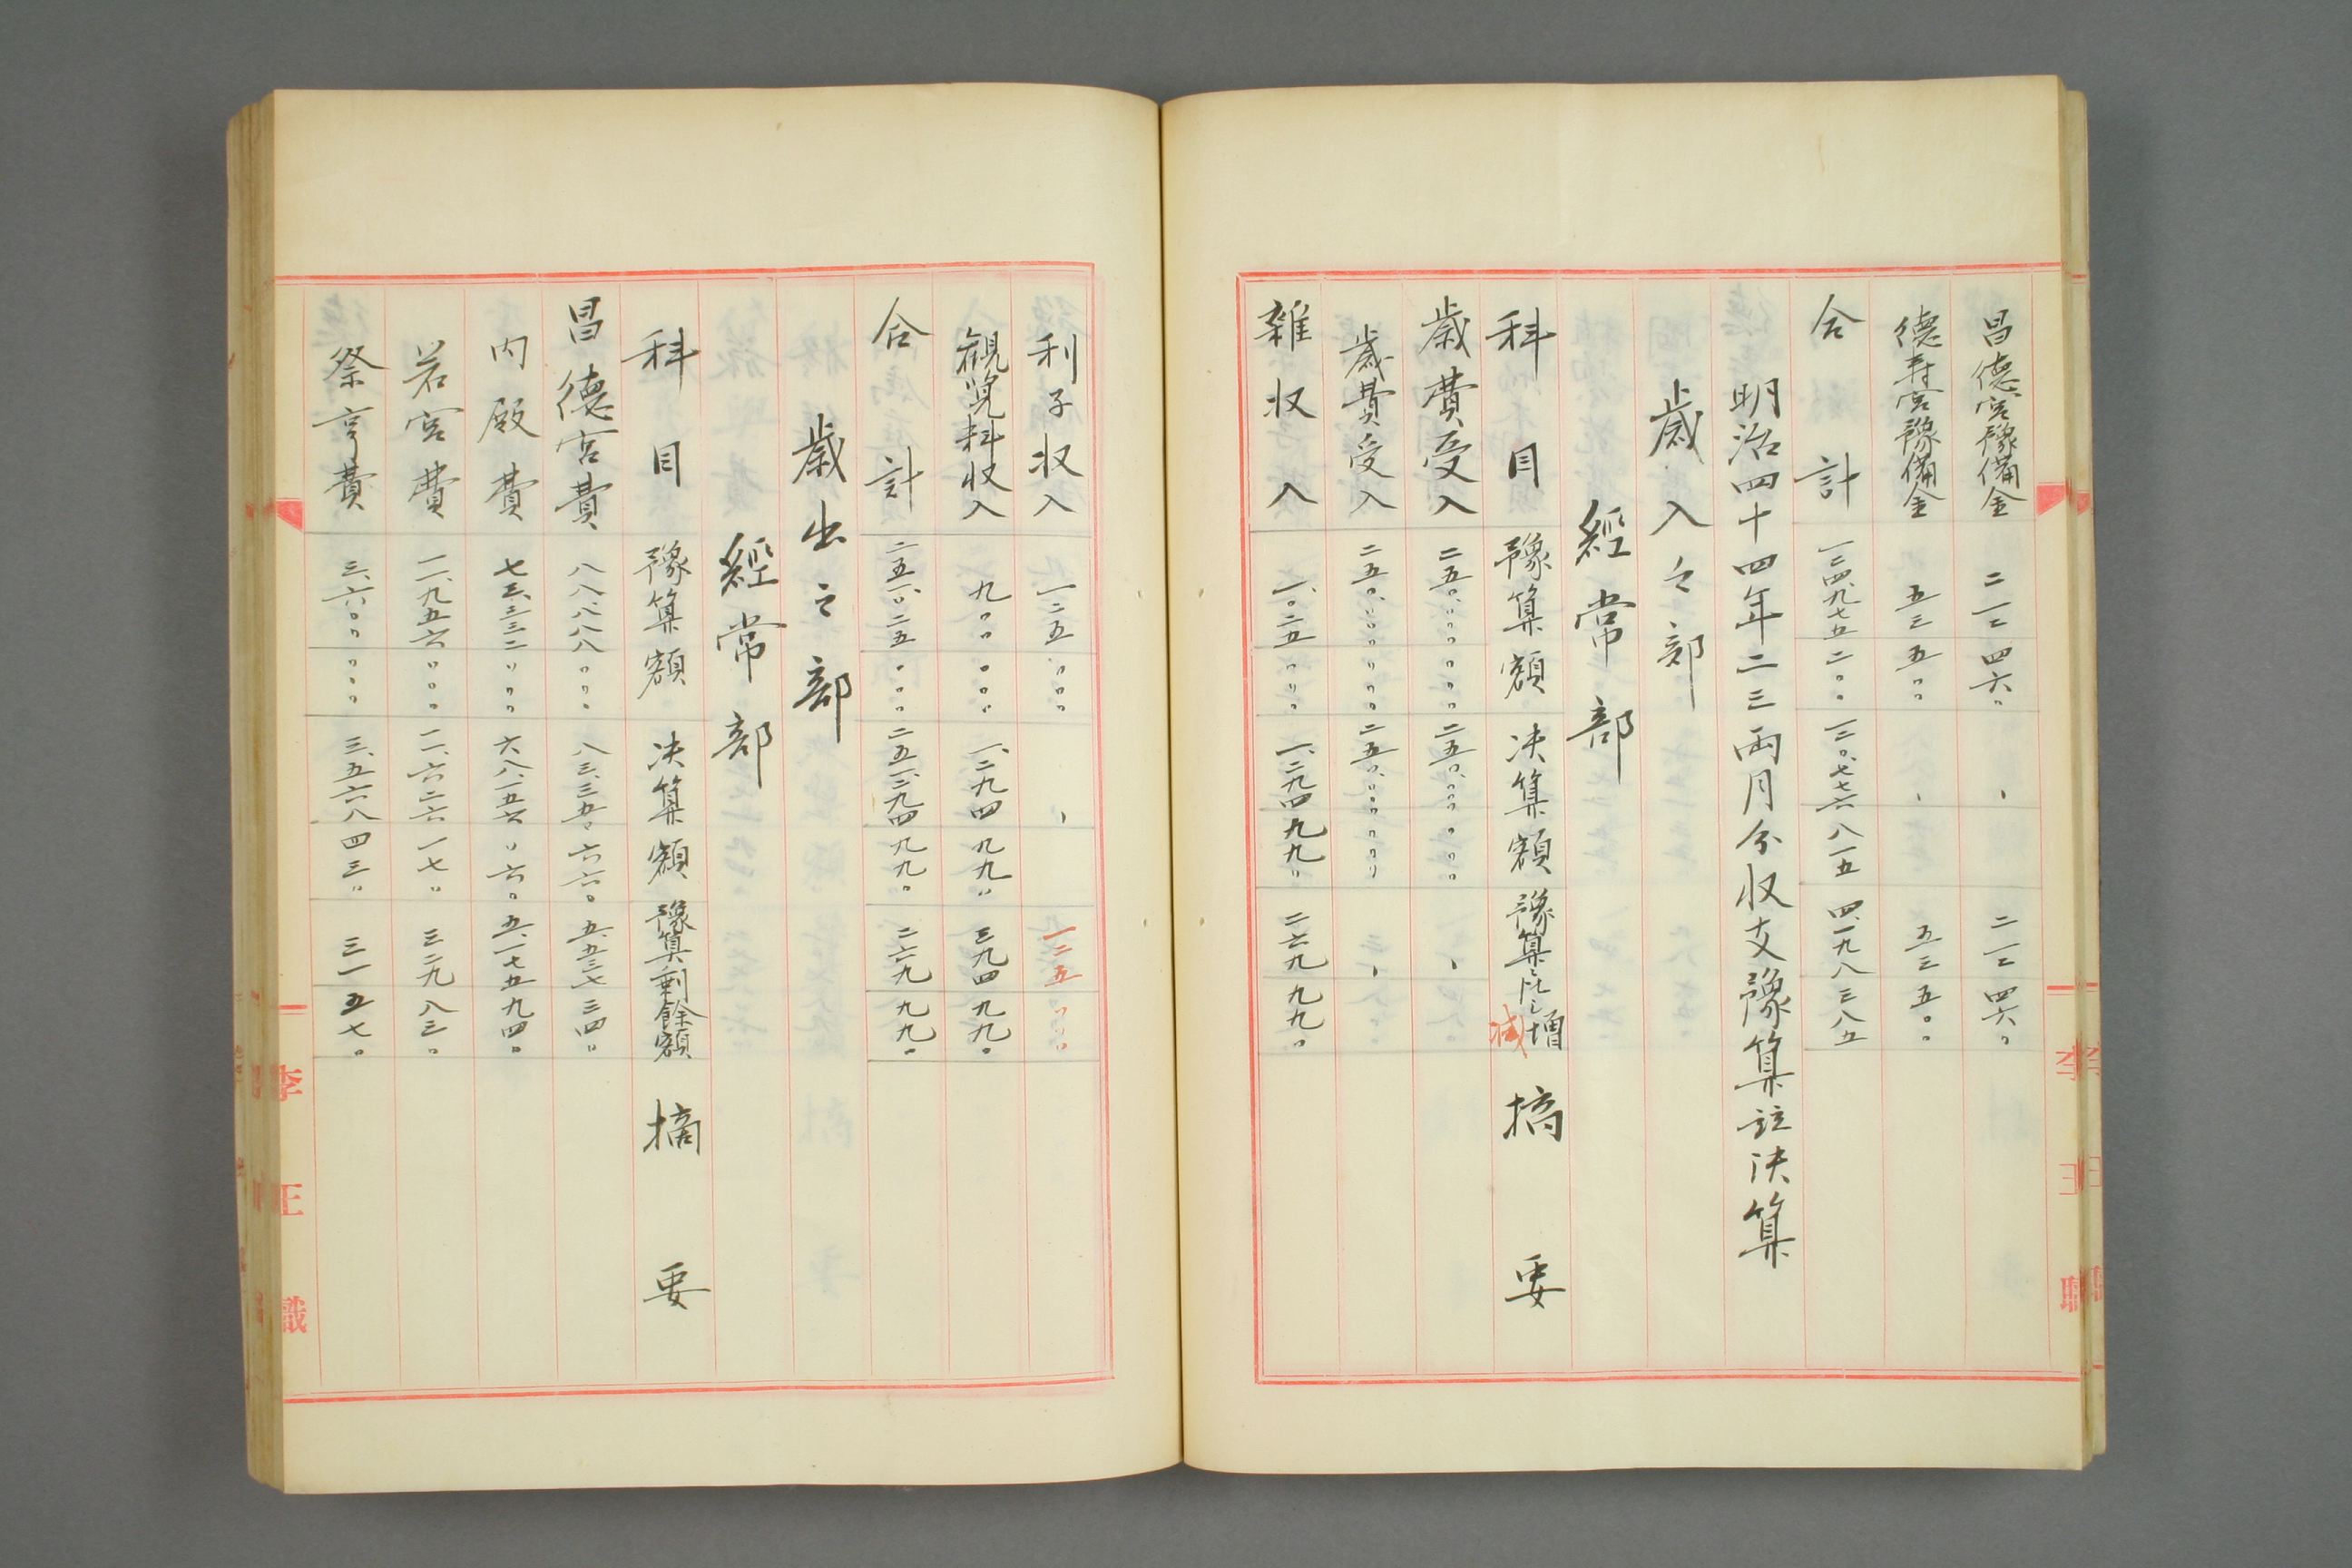 昌德宮豫備金 二一二四六〇 、 二一二四六〇
德壽宮豫備金 五三五〇〇 、 五三五〇〇
合計 一二四、九七五二〇〇 一二〇、七七六八一五 四、一九八三八五
明治四十四年二三兩月分收支豫算並決算
歲入之部
經常部
科目 豫算額 決算額 豫算ニ比シ增減 摘要
歲費受入 二五〇、〇〇〇〇〇〇 二五〇、〇〇〇〇〇〇 、
歲費受入 二五〇、〇〇〇〇〇〇 二五〇、〇〇〇〇〇〇 、
雜收入 一、〇二五〇〇〇 一、二九四九九〇 二六九九九〇
利子收入 一二五〇〇〇 、 一二五〇〇〇
觀覽料收入 九〇〇〇〇〇 一、二九四九九〇 三九四九九〇
合計 二五一、〇二五〇〇〇 二五一、二九四九九〇 二六九九九〇
歲出之部
經常部
科目 豫算額 決算額 豫算剩餘額 摘要
昌德宮費 八八、八八八〇〇〇 八三、三五〇六六〇 五、五三七三四〇
內殿費 七三、三三二〇〇〇 六八、一五六〇六〇 五、一七五九四〇
若宮費 一一、九五六〇〇〇 一一、六二六一七〇 三二九八三〇
祭亨費 三、六〇〇〇〇〇 三、五六八四三〇 三一五七〇
李王職
李王職